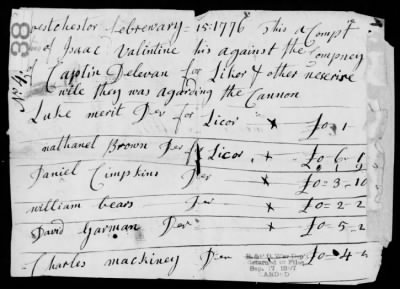 westchester febrewary = 15 = 1776 this a Compt
of Isaac Valintine his against the Compney
of Captin Delevan for Likor & other
wile they was agarding the Cannon
Luke merit Der for Licor × £0 = 1
nathanel Brown Der for Licor × £0 = 6 = 9
Daniel Cimpkins Der × £0 = 3 = 10
william bears Der × £0 = 2 = 2
David Garman Der × £0 = 5 = 2
Charles mackiney Der × £0 = 4 =
No. 4
88
R. & P. Off. War Dep't
Returned to Files,
Sep. 17 1897
CARDED